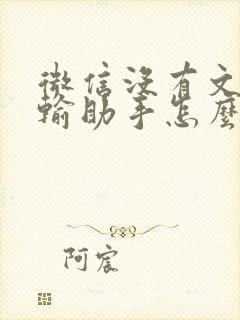 微信没有文
输助手怎麽
阿宸